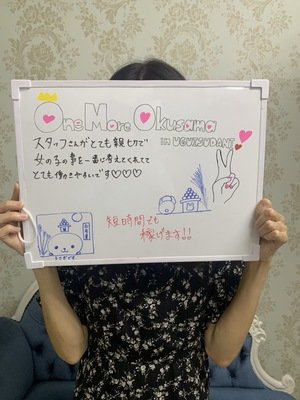 One More Okusama
in UGUISUDANI
スタッフさんがとても親切で
女の子の事を一番に考えてくれてて
とても働きやすいです♡♡♡
短時間でも
稼げます!!